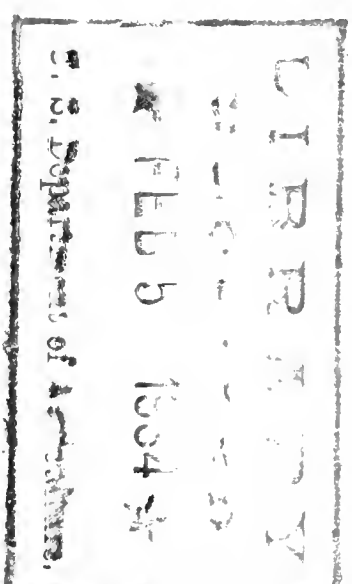 LIBRARY
★ FEB 5 1934 ★
U. S. Department of Agriculture.